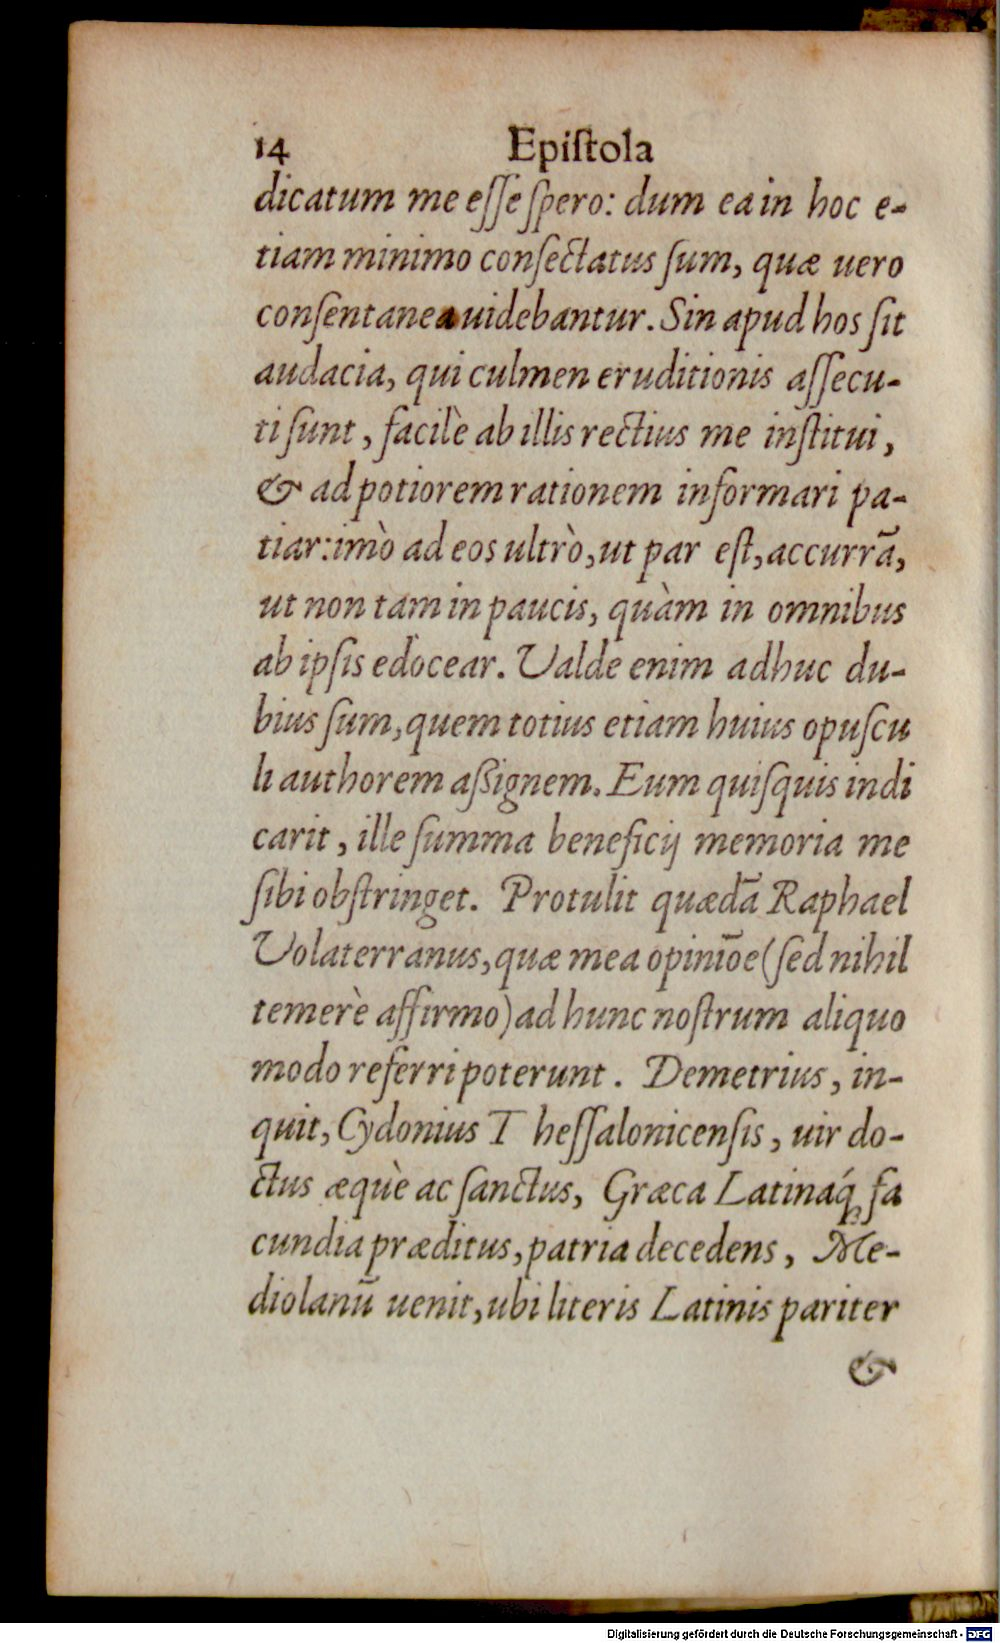 14 Epiſtola
dicatum me eſſe ſpero: dum ea in hoc e-
tiam minimo conſectatus ſum, quæ uero
conſentanea uidebantur. Sin apud hos ſit
audacia, qui culmen eruditionis aſſecu-
ti ſunt, facilè ab illis rectius me inſtitui,
& ad potiorem rationem informari pa-
tiar: imò ad eos ultrò, ut par eſt, accurrā,
ut non tam in paucis, quàm in omnibus
ab ipſis edocear. Ualde enim adhuc du-
bius ſum, quem totius etiam huius opuſcu
li authorem aßignem. Eum quiſquis indi
carit, ille ſumma beneficij memoria me
ſibi obſtringet. Protulit quædā Raphael
Uolaterranus, quæ mea opiniōe (ſed nihil
temerè affirmo) ad hunc noſtrum aliquo
modo referri poterunt. Demetrius, in-
quit, Cydonius Theſſalonicenſis, uir do-
ctus æquè ac ſanctus, Græca Latinaq́ꝫ fa
cundia præditus, patria decedens, Me-
diolanū uenit, ubi literis Latinis pariter
&
Digitalisierung gefördert durch die Deutsche Forschungsgemeinschaft - DFG